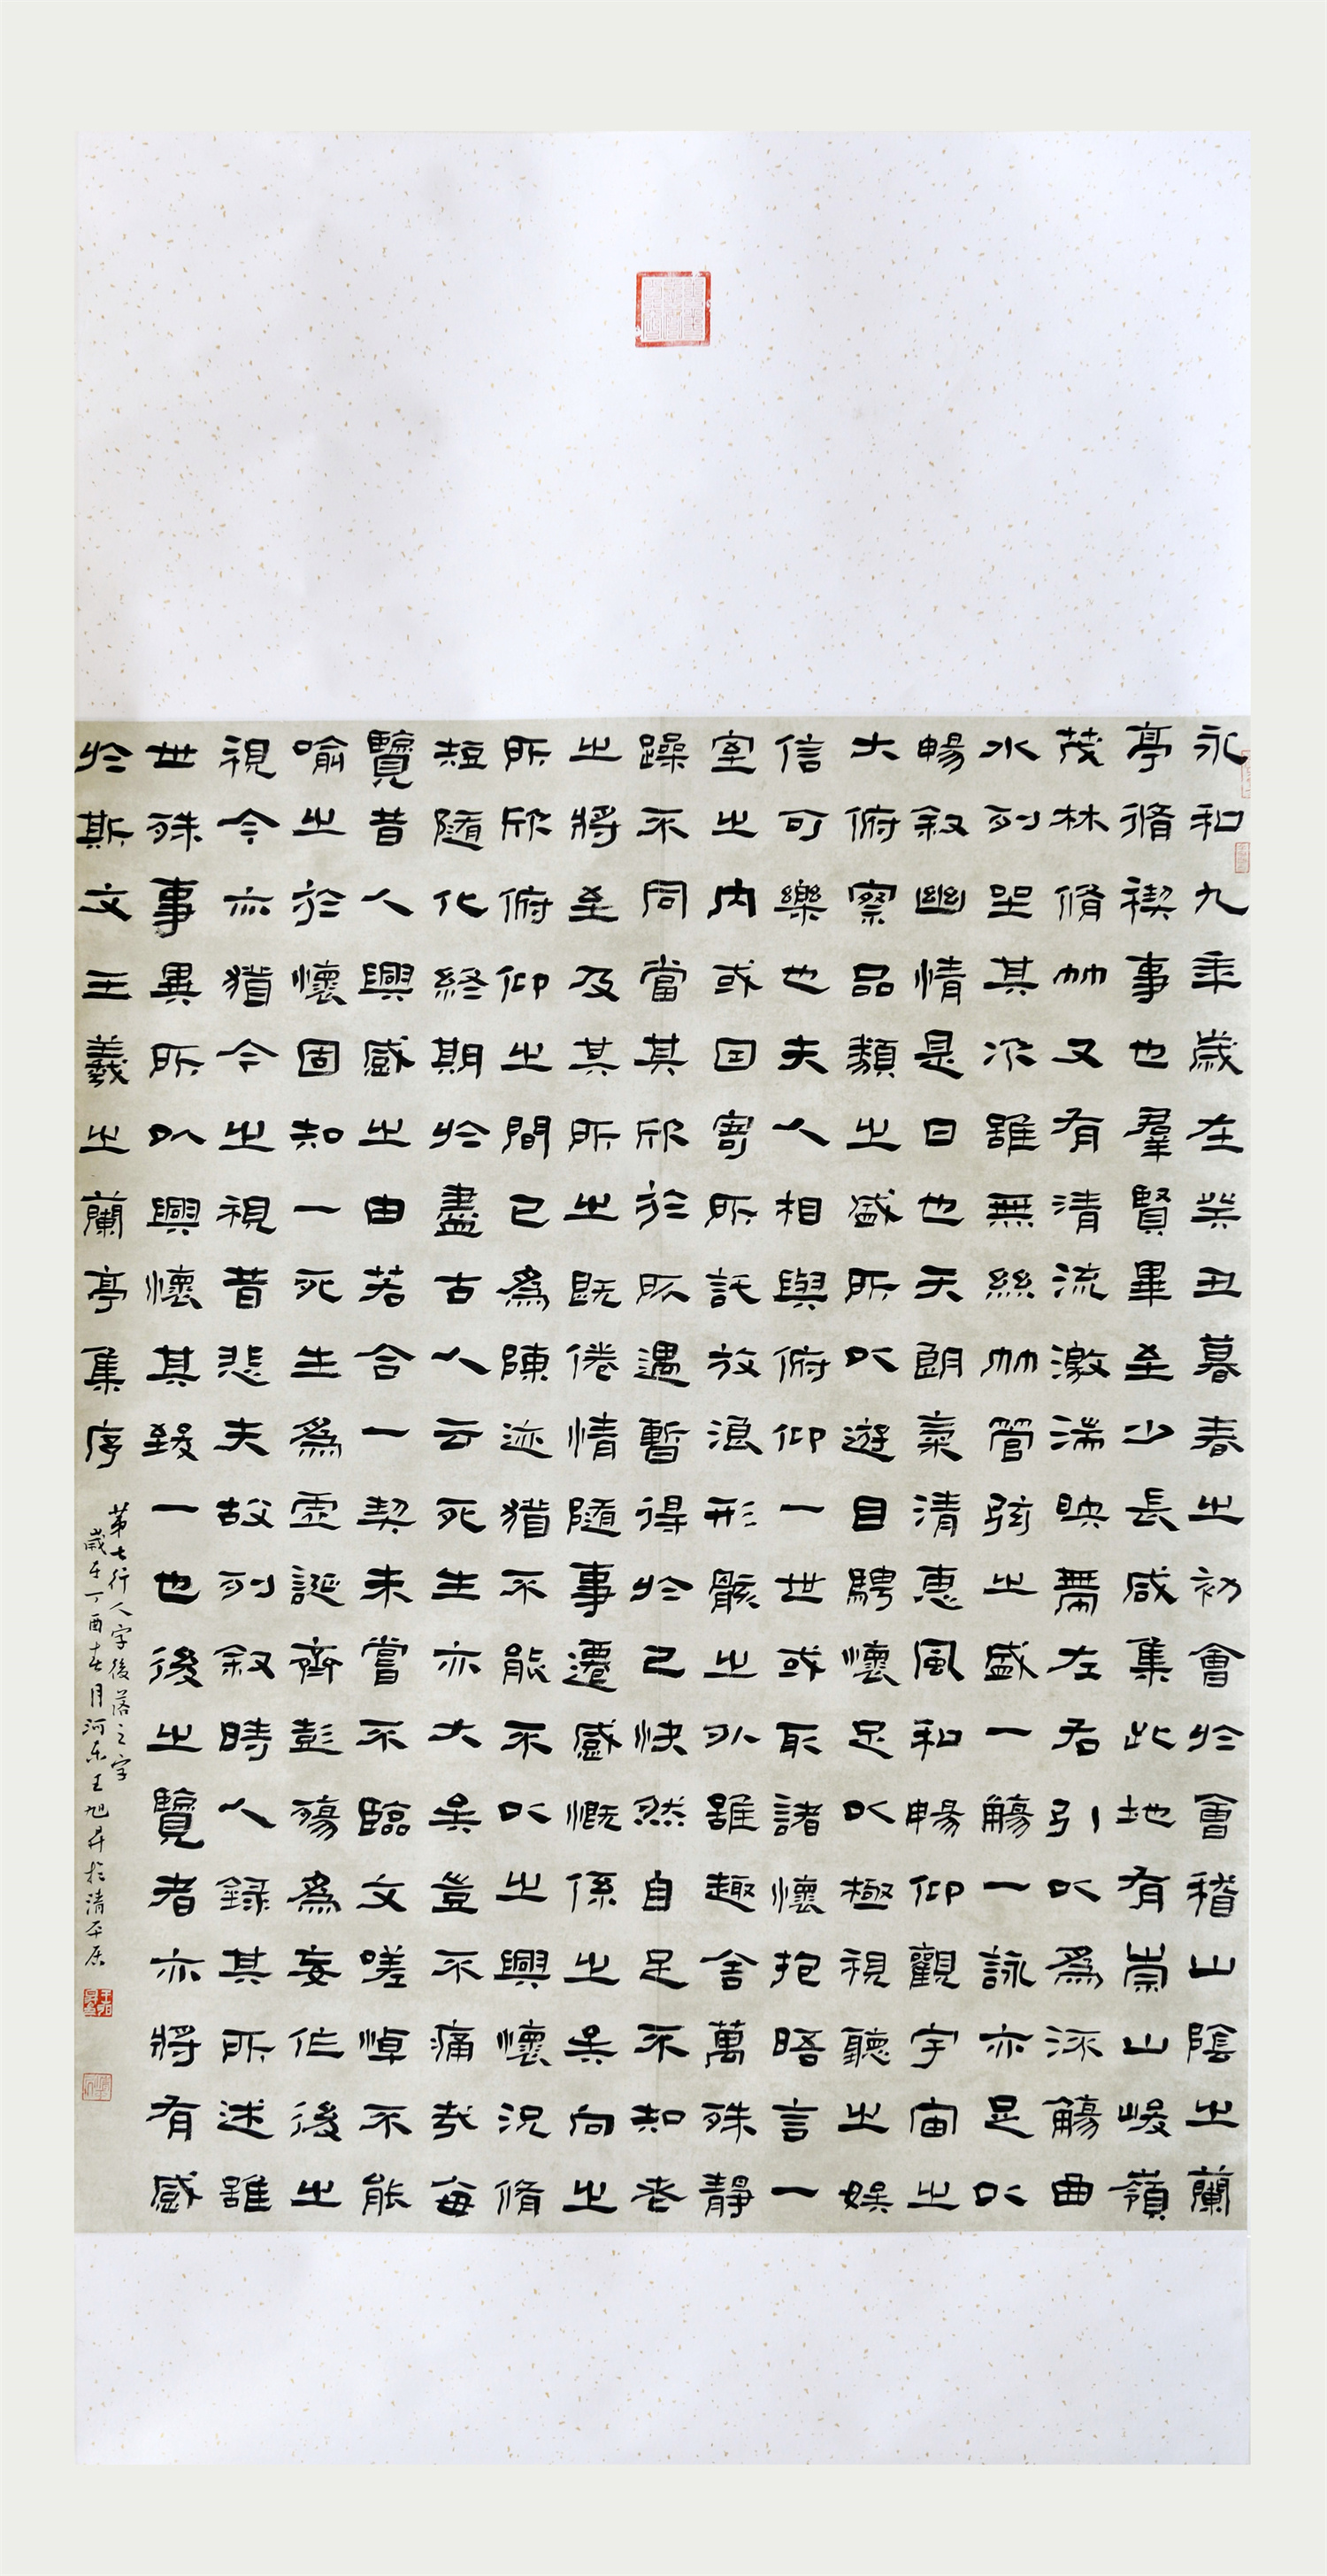 永和九年歲在癸丑暮春之初會於會稽山陰之蘭
亭脩禊事也羣賢畢至少長咸集此地有崇山峻嶺
茂林脩竹又有清流激湍映帶左右引以為流觴曲
水列坐其次雖無絲竹管弦之盛一觴一詠亦足以
暢敘幽情是日也天朗氣清惠風和暢仰觀宇宙之
大俯察品類之盛所以遊目騁懷足以極視聽之娛
信可樂也夫人相與俯仰一世或取諸懷抱晤言一
室之內或因寄所託放浪形骸之外雖趣舍萬殊靜
躁不同當其欣於所遇暫得於己快然自足不知老
之將至及其所之既倦情隨事遷感慨係之矣向之
所欣俯仰之間已為陳迹猶不能不以之興懷況脩
短隨化終期於盡古人云死生亦大矣豈不痛哉每
覽昔人興感之由若合一契未嘗不臨文嗟悼不能
喻之於懷固知一死生為虛誕齊彭殤為妄作後之
視今亦猶今之視昔悲夫故列敘時人錄其所述雖
世殊事異所以興懷其致一也後之覽者亦將有感
於斯文王羲之蘭亭集序
第七行人字後落之字
歲在丁酉春月河東王旭昇於清平居